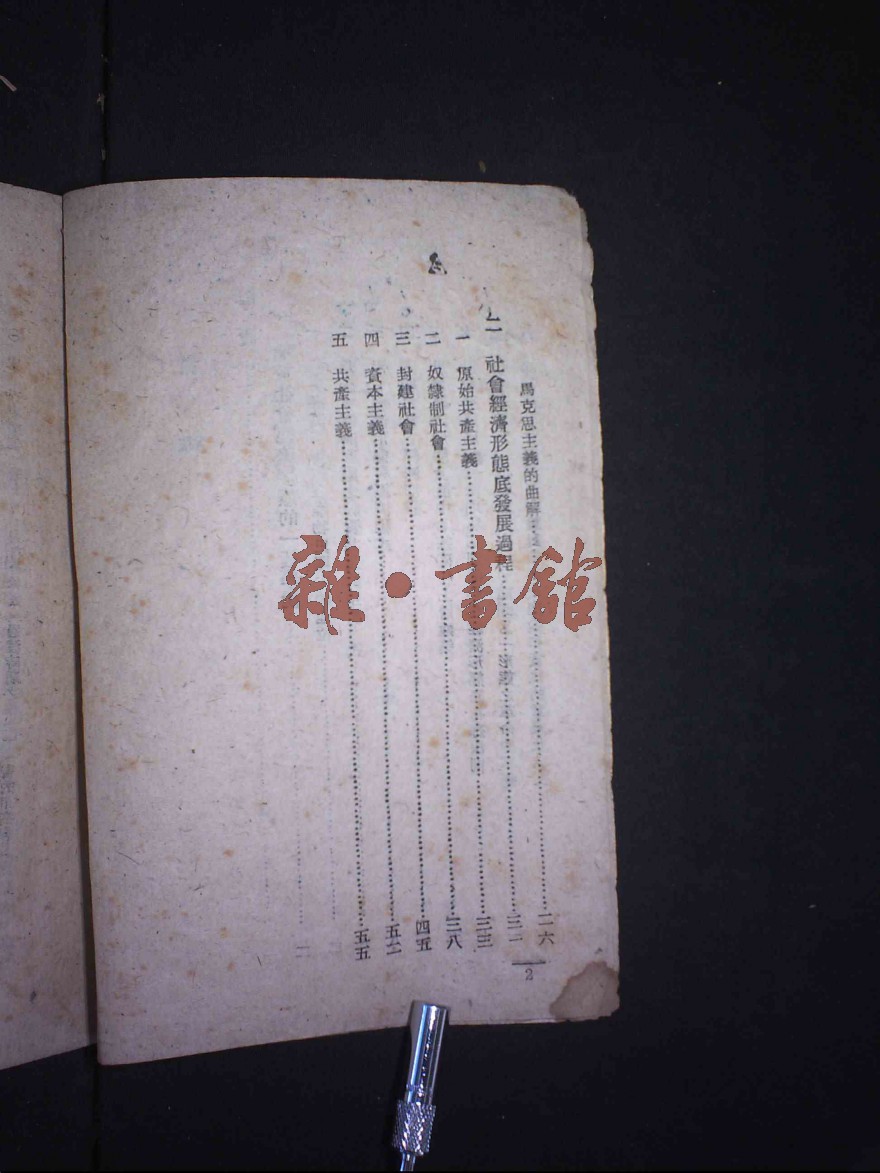 馬克思主義的曲解……二六
二 社會經濟形態底發展過程……三一
一 原始共產主義……三三
二 奴隸制社會……三八
三 封建社會……四五
四 資本主義……五二
五 共產主義……五五
2
雜·書館